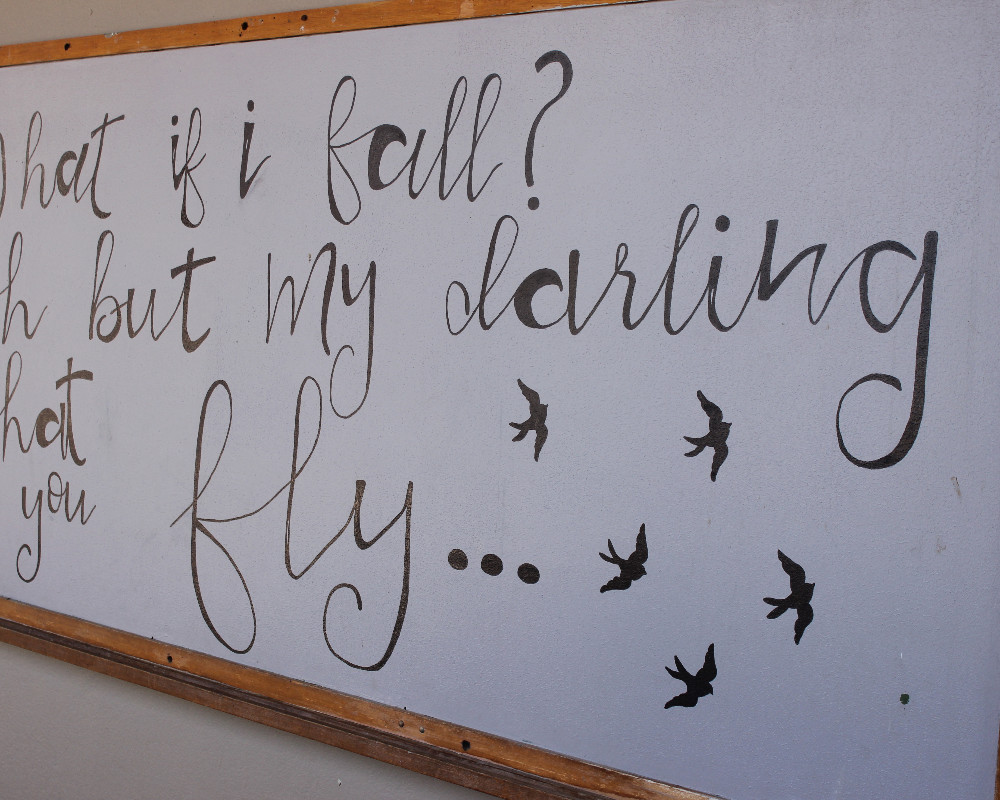 What if i fall?
h but my darling
hat
you fly...